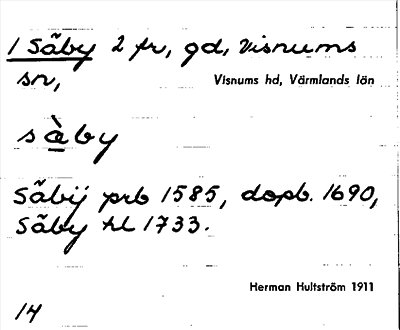 1 Säby 2 fr, gd, Visnums
sn,
Visnums hd, Värmlands län
sàby
Säbij prb 1585, dopb. 1690,
Säby hl 1733.
Herman Hultström 1911
14